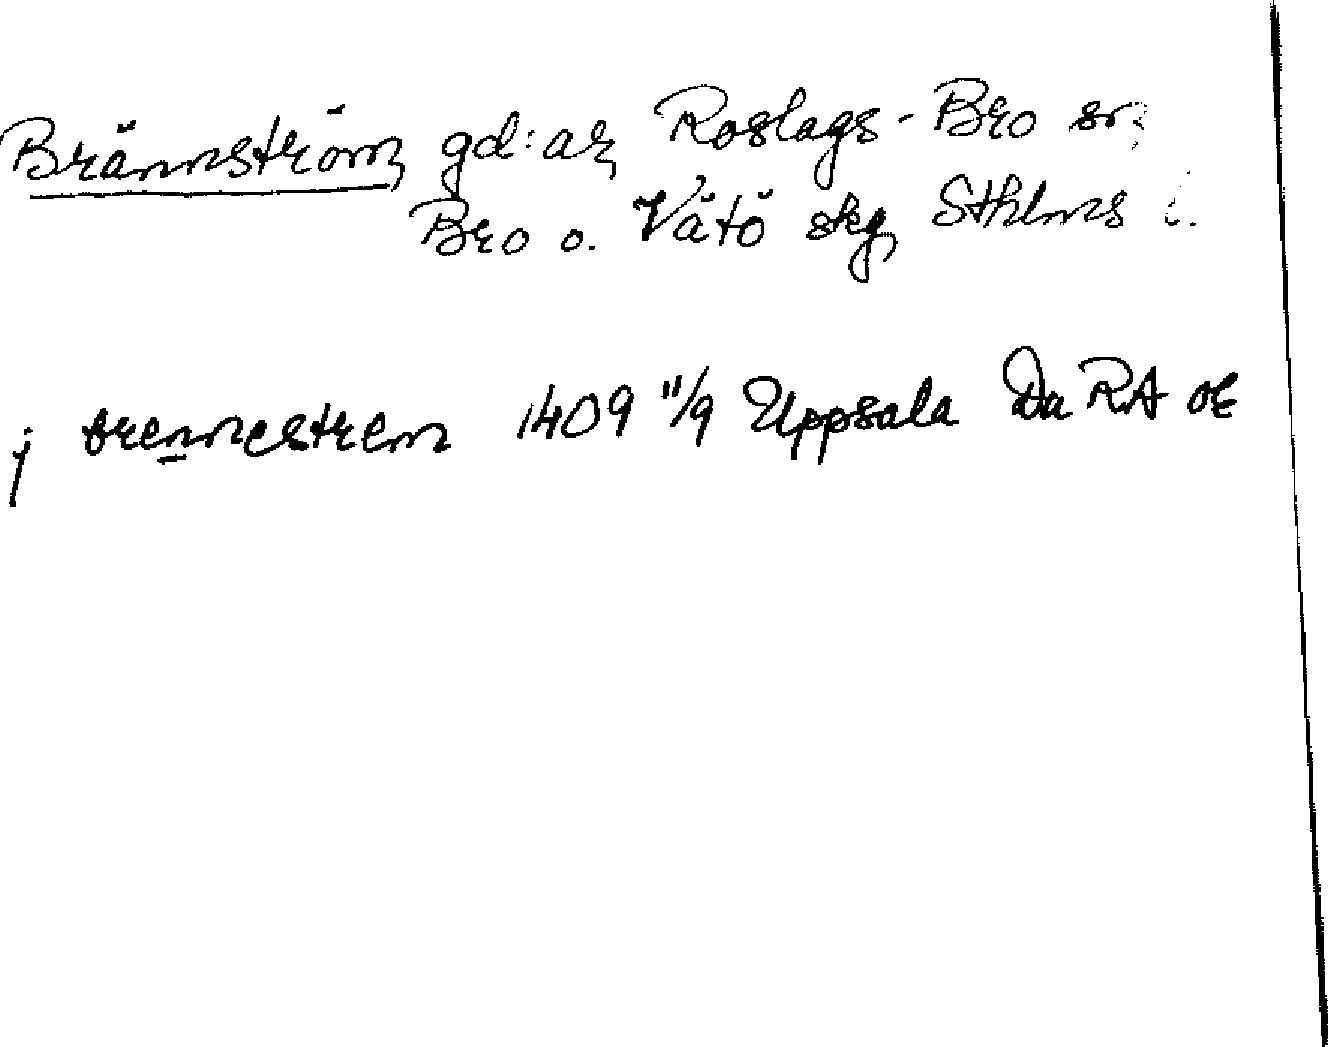 Brännström, gd:ar, Roslags-Bro sn,
Bro o. Vätö skg, Sthlms l.
j brennestrem 1409 11/9 Uppsala Da RA or